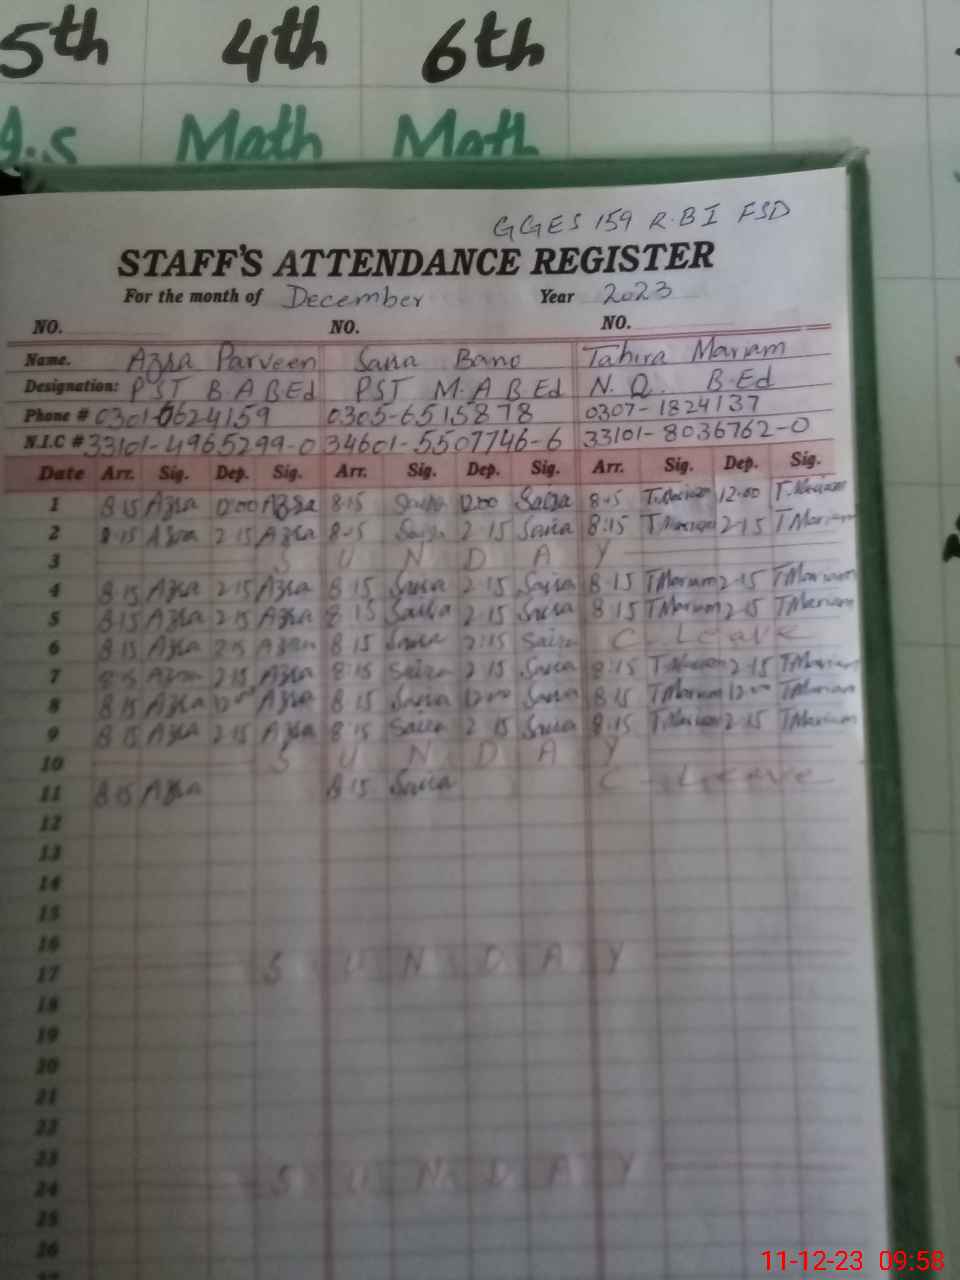 5th 4th 6th
g.s Math Math
GGES 159 R.B I FSD
STAFF'S ATTENDANCE REGISTER
For the month of December Year 2023
NO. NO. NO.
Name. Azra Parveen Sana Bano Tahira Mariam
Designation: PST B.A B.Ed PST M.A B.Ed N.Q. B.Ed
Phone # 0301-0624159 0305-6515878 0307-1824137
N.I.C # 33101-4965299-0 34601-5507746-6 33101-8036762-0
Date Arr. Sig. Dep. Sig. Arr. Sig. Dep. Sig. Arr. Sig. Dep. Sig.
1 8 15 Azra 12:00 Azra 8:15 12:00 8:15 T.Mariam 12:00 T.Mariam
2 8:15 Azra 2 15 Azra 8:15 2 15 8:15 T Mariam 2-15 T Mariam
3 S U N D A Y
4 8 15 Azra 2 15 Azra 8 15 2 15 8 15 T Mariam 2-15 T Mariam
5 8 15 Azra 2 15 Azra 8 15 2 15 8 15 T Mariam 2-15 T Mariam
6 8 15 Azra 2 15 Azra 8 15 2:15 C-Leave
7 8 15 Azra 2 15 Azra 8:15 2 15 8:15 T Mariam 2-15 T Mariam
8 8 15 Azra 12 00 Azra 8 15 12 00 8 15 T Mariam 12 00 T Mariam
9 8 15 Azra 2 15 Azra 8 15 2 15 8:15 T Mariam 2-15 T Mariam
10 S U N D A Y
11 8 15 Azra 8 15 C-Leave
12
13
14
15
16
17 S U N D A Y
18
19
20
21
22
23
24 S U N D A Y
25
26
11-12-23 09:58